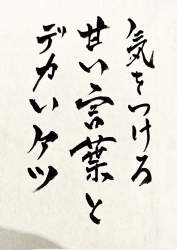 気をつけろ
甘い言葉と
デカいケツ